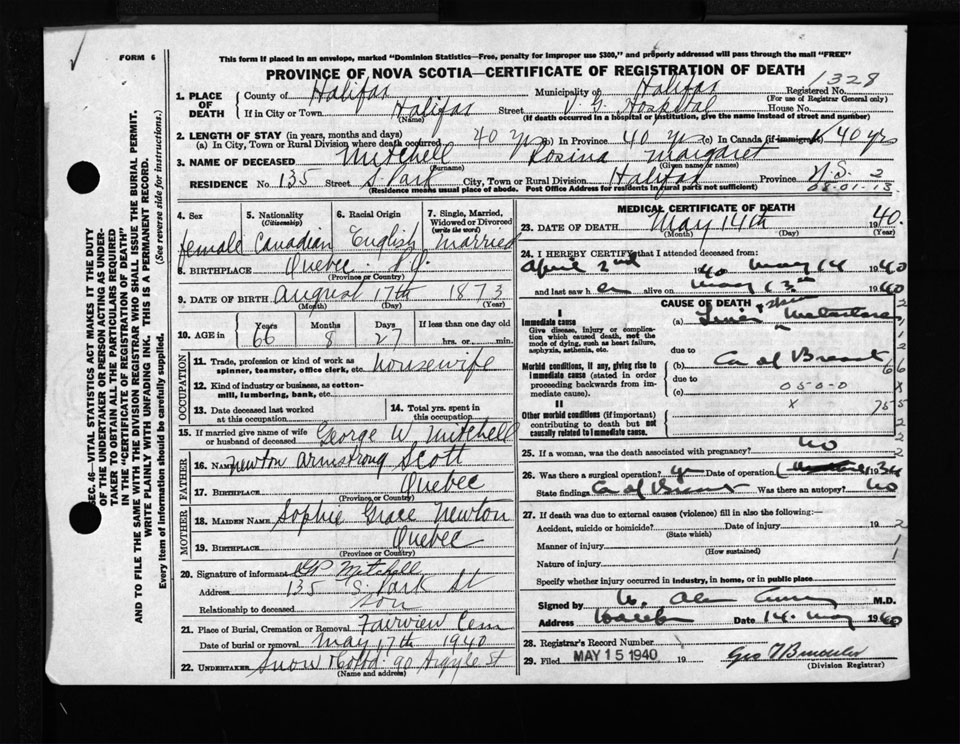 FORM 6
This form if placed in an envelope, marked "Dominion Statistics—Free, penalty for improper use $300," and properly addressed will pass through the mail "FREE"
PROVINCE OF NOVA SCOTIA—CERTIFICATE OF REGISTRATION OF DEATH
1328
1. PLACE OF DEATH
County of Halifax Municipality of Halifax Registered No.
(For use of Registrar General only)
If in City or Town Halifax Street V. G. Hospital House No.
(Name) (If death occurred in a hospital or institution, give the name instead of street and number)
2. LENGTH OF STAY (in years, months and days)
(a) In City, Town or Rural Division where death occurred 40 yrs (b) In Province 40 yrs (c) In Canada (if immigrant) 40 yrs
3. NAME OF DECEASED Mitchell Rosina Margaret
(Surname) (Given name or names)
RESIDENCE No. 135 Street S. Park City, Town or Rural Division Halifax Province N.S. 2
(Residence means usual place of abode. Post Office Address for residents in rural parts not sufficient) 08.01.13
SEC. 46—VITAL STATISTICS ACT MAKES IT THE DUTY
OF THE UNDERTAKER OR PERSON ACTING AS UNDER-
TAKER TO OBTAIN ALL THE PARTICULARS REQUIRED
IN THE "CERTIFICATE OF REGISTRATION OF DEATH"
AND TO FILE THE SAME WITH THE DIVISION REGISTRAR WHO SHALL ISSUE THE BURIAL PERMIT.
WRITE PLAINLY WITH UNFADING INK. THIS IS A PERMANENT RECORD.
Every item of information should be carefully supplied. (See reverse side for instructions.)
4. Sex 5. Nationality (Citizenship) 6. Racial Origin 7. Single, Married, Widowed or Divorced (write the word)
female Canadian English Married
8. BIRTHPLACE Quebec P.Q.
(Province or Country)
9. DATE OF BIRTH August 17th 1873
(Month) (Day) (Year)
10. AGE in Years 66 Months 8 Days 27 If less than one day old
hrs. or min.
OCCUPATION
11. Trade, profession or kind of work as spinner, teamster, office clerk, etc. housewife
12. Kind of industry or business, as cotton-mill, lumbering, bank, etc.
13. Date deceased last worked at this occupation 14. Total yrs. spent in this occupation
15. If married give name of wife or husband of deceased George W Mitchell
FATHER
16. Name Newton Armstrong Scott
17. Birthplace Quebec
(Province or Country)
MOTHER
18. Maiden Name Sophie Grace Newton
19. Birthplace Quebec
(Province or Country)
20. Signature of informant Mitchell
Address 135 S. Park St
Relationship to deceased son
21. Place of Burial, Cremation or Removal Fairview Cem
Date of burial or removal May 17th 1940
22. UNDERTAKER Snow & Co Ltd. 90 Argyle St
(Name and address)
MEDICAL CERTIFICATE OF DEATH
23. DATE OF DEATH May 14th 1940.
(Month) (Day) (Year)
24. I HEREBY CERTIFY that I attended deceased from:
April 2nd 1940 May 14 1940
and last saw her alive on May 13th 1940
CAUSE OF DEATH
I
Immediate cause
Give disease, injury or complication which caused death, not the mode of dying, such as heart failure, asphyxia, asthenia, etc.
(a) Liver
due to
Morbid conditions, if any, giving rise to immediate cause (stated in order proceeding backwards from immediate cause).
(b) Ca of Breast 66
due to
(c) 050-0 x
II
x 755
Other morbid conditions (if important) contributing to death but not causally related to immediate cause.
25. If a woman, was the death associated with pregnancy? no
26. Was there a surgical operation? yes Date of operation 1936
State findings Ca of Breast Was there an autopsy? no
27. If death was due to external causes (violence) fill in also the following:—
Accident, suicide or homicide? Date of injury 19 2
(State which)
Manner of injury 1
(How sustained)
Nature of injury 1
Specify whether injury occurred in industry, in home, or in public place
Signed by M.D.
Address Halifax Date 14. May 1940
28. Registrar's Record Number
29. Filed MAY 15 1940 19
(Division Registrar)